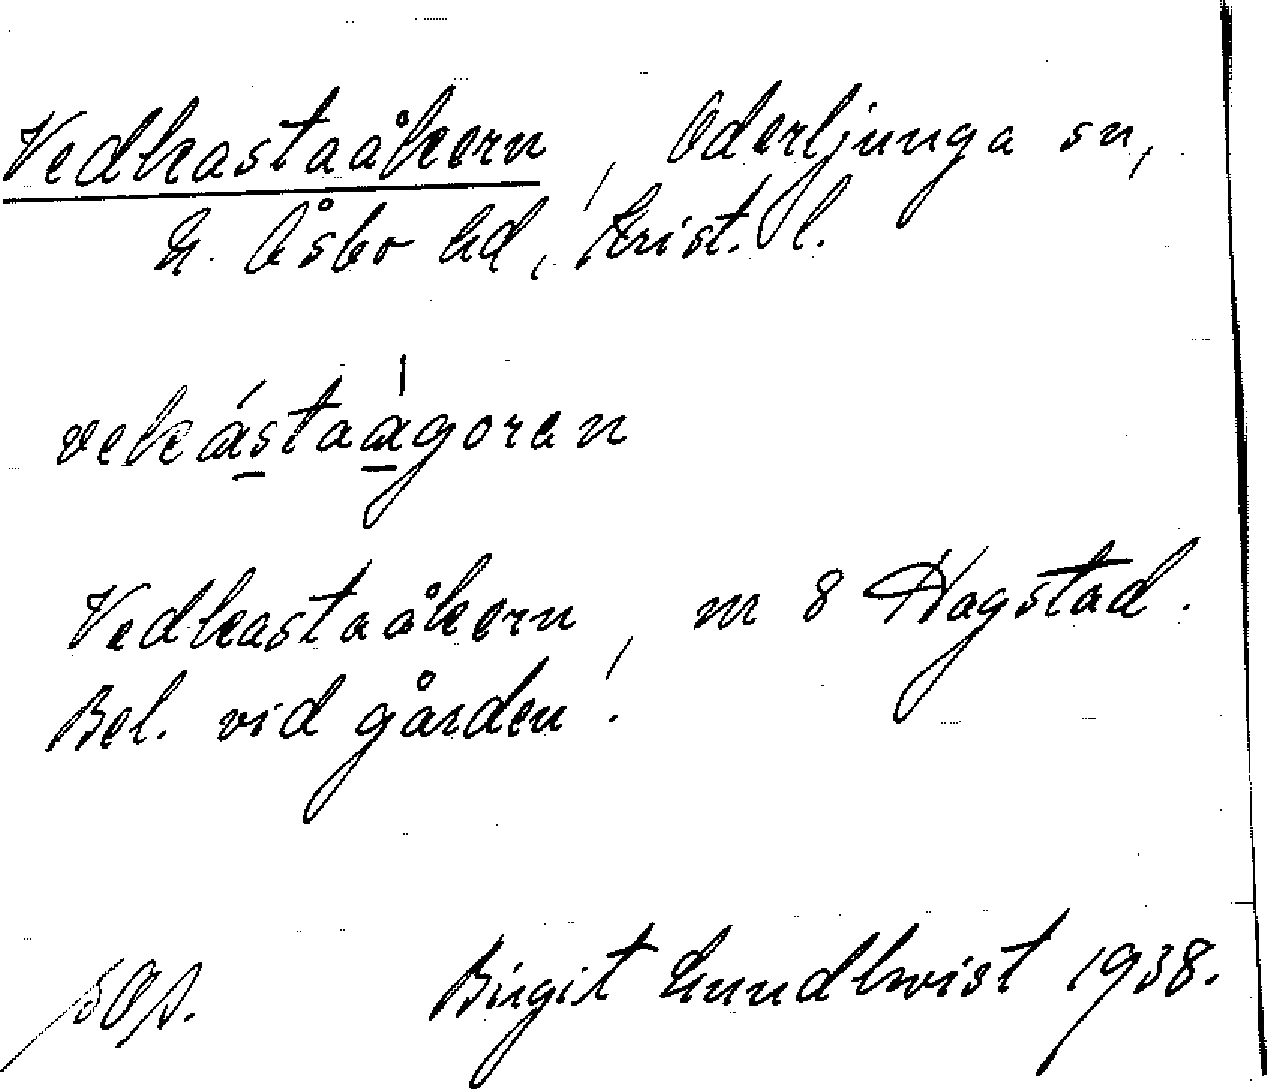 Vedkastaåkern, Oderljunga sn,
N. Åsbo hd, Krist. l.
vekástaágoran
Vedkastaåkern, m 8 Hagstad.
Bel. vid gården!
Birgit Lundkvist 1938.